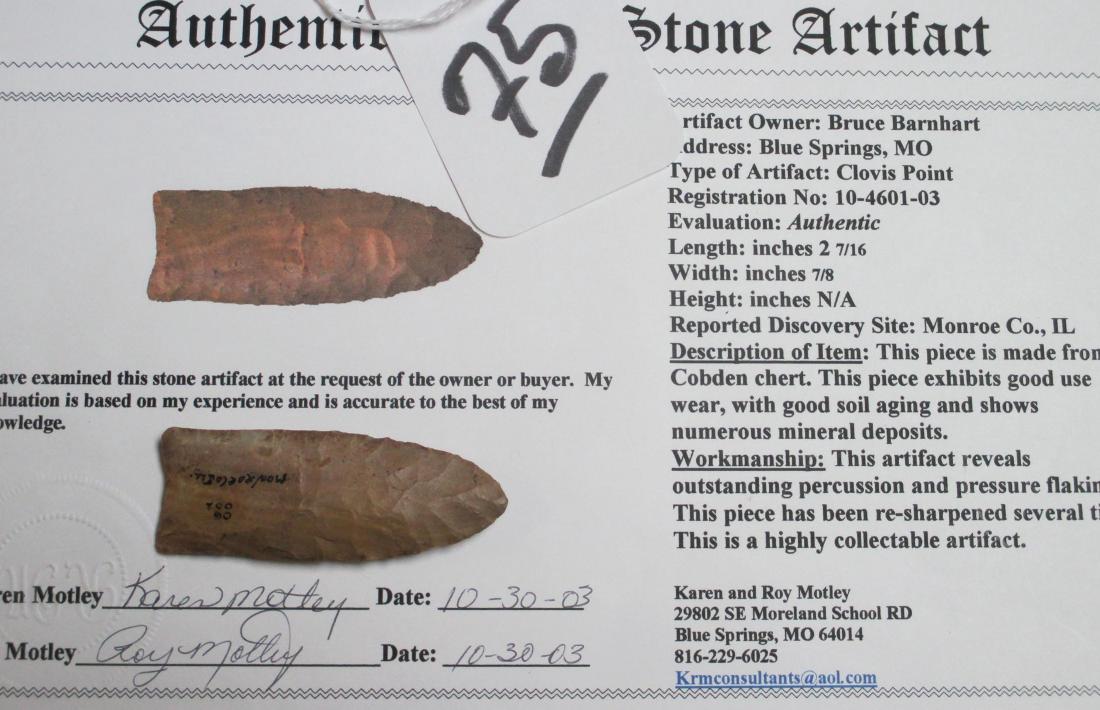 Authentic Stone Artifact
25
rtifact Owner: Bruce Barnhart
ddress: Blue Springs, MO
Type of Artifact: Clovis Point
Registration No: 10-4601-03
Evaluation: Authentic
Length: inches 2 7/16
Width: inches 7/8
Height: inches N/A
Reported Discovery Site: Monroe Co., IL
Description of Item: This piece is made from
Cobden chert. This piece exhibits good use
wear, with good soil aging and shows
numerous mineral deposits.
Workmanship: This artifact reveals
outstanding percussion and pressure flakin
This piece has been re-sharpened several ti
This is a highly collectable artifact.
ave examined this stone artifact at the request of the owner or buyer. My
aluation is based on my experience and is accurate to the best of my
owledge.
ren Motley Karen Motley Date: 10-30-03
Motley Roy Motley Date: 10-30-03
Karen and Roy Motley
29802 SE Moreland School RD
Blue Springs, MO 64014
816-229-6025
Krmconsultants@aol.com